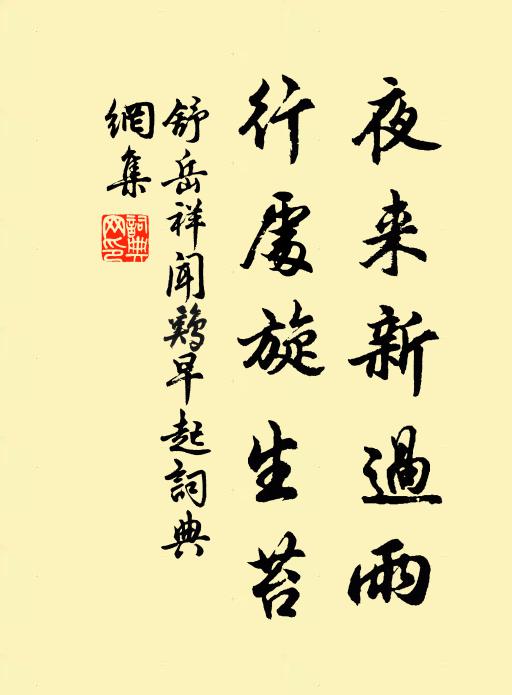 夜来新過雨
行處旋生苔
舒岳祥聞鷄早起詞典
網集
詞典
网印